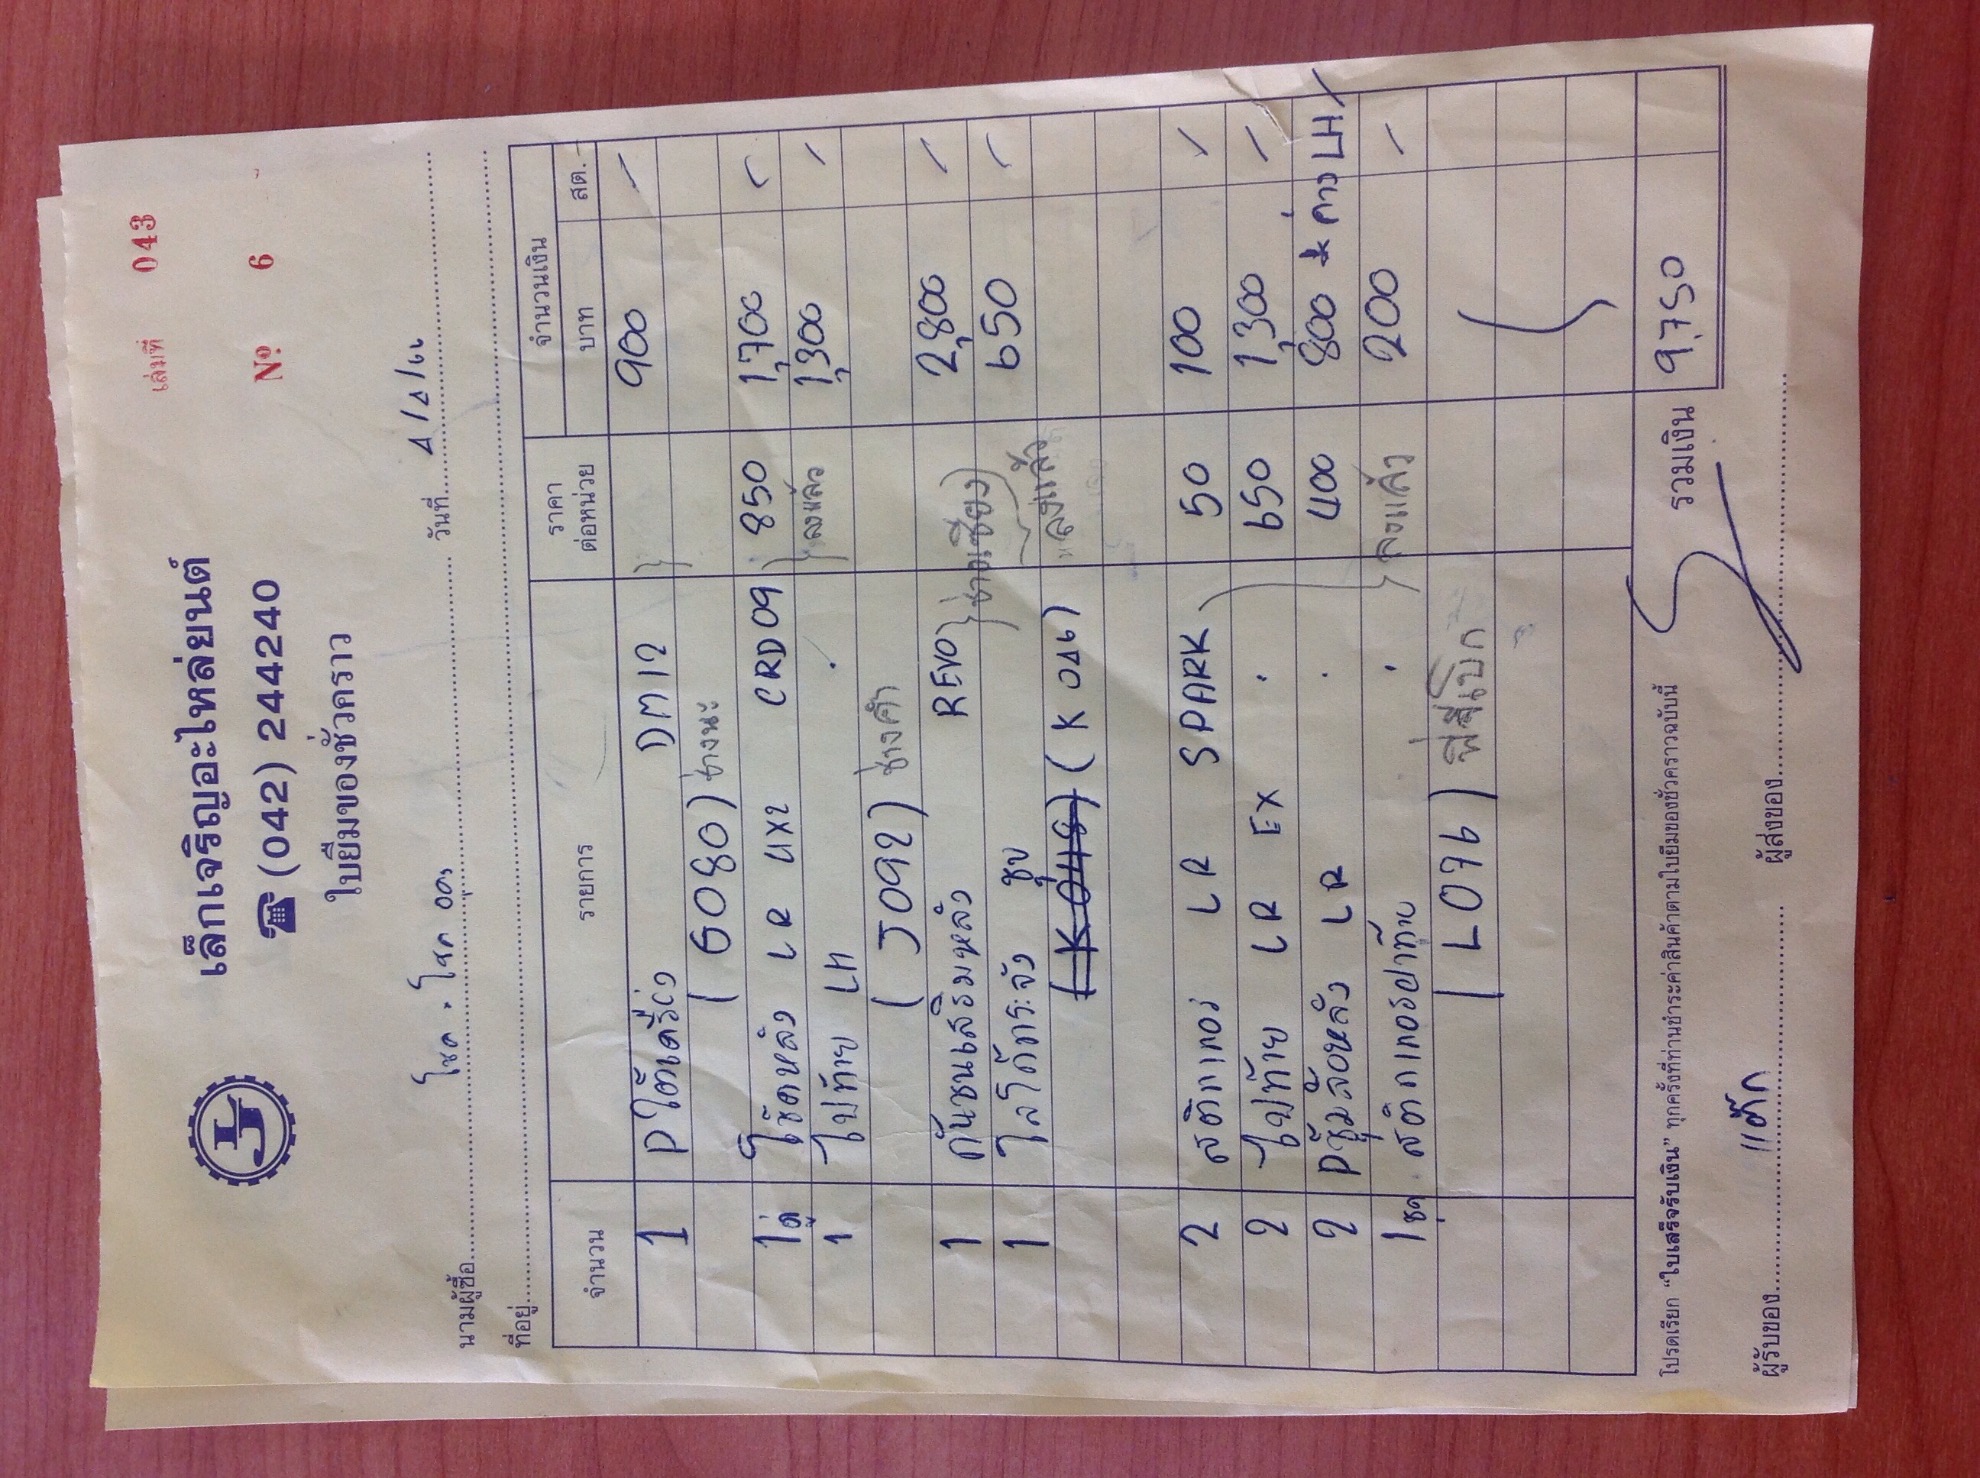 เล่มที่ 043
เล็กเจริญอะไหล่ยนต์
☎ (042) 244240
Nº 6
ใบยืมของชั่วคราว
นามผู้ซื้อ โชค . โชค อุดร วันที่ 4/4/62
ที่อยู่
จำนวน รายการ ราคาต่อหน่วย จำนวนเงิน บาท สต.
1 Pใต้เครื่อง DM12 900 -
(G080) ช่างนะ
1คู่ โช้คหลัง LR 4X2 CRD09 850 1,700 -
1 ไฟท้าย LH . ลงแล้ว 1,300 -
(J092) ช่างคำ
1 กันชนเสริมหลัง REVO ช่างเซียง 2,800 -
1 โลโก้กระจัง ชุบ 650 -
(K048) (K046) ลงแล้ว
2 สติกเกอร์ LR SPARK 50 100 -
2 ไฟท้าย LR EX . 650 1,300 -
2 Pซุ้มล้อหลัง LR . 400 800 * ค้าง LH /
1 ชุด สติกเกอร์ฝาท้าย . ลงแล้ว 200 -
(L076) พี่สีโบก
รวมเงิน 9,750
โปรดเรียก "ใบเสร็จรับเงิน" ทุกครั้งที่ท่านชำระค่าสินค้าตามใบยืมของชั่วคราวฉบับนี้
ผู้รับของ แต๊ก ผู้ส่งของ